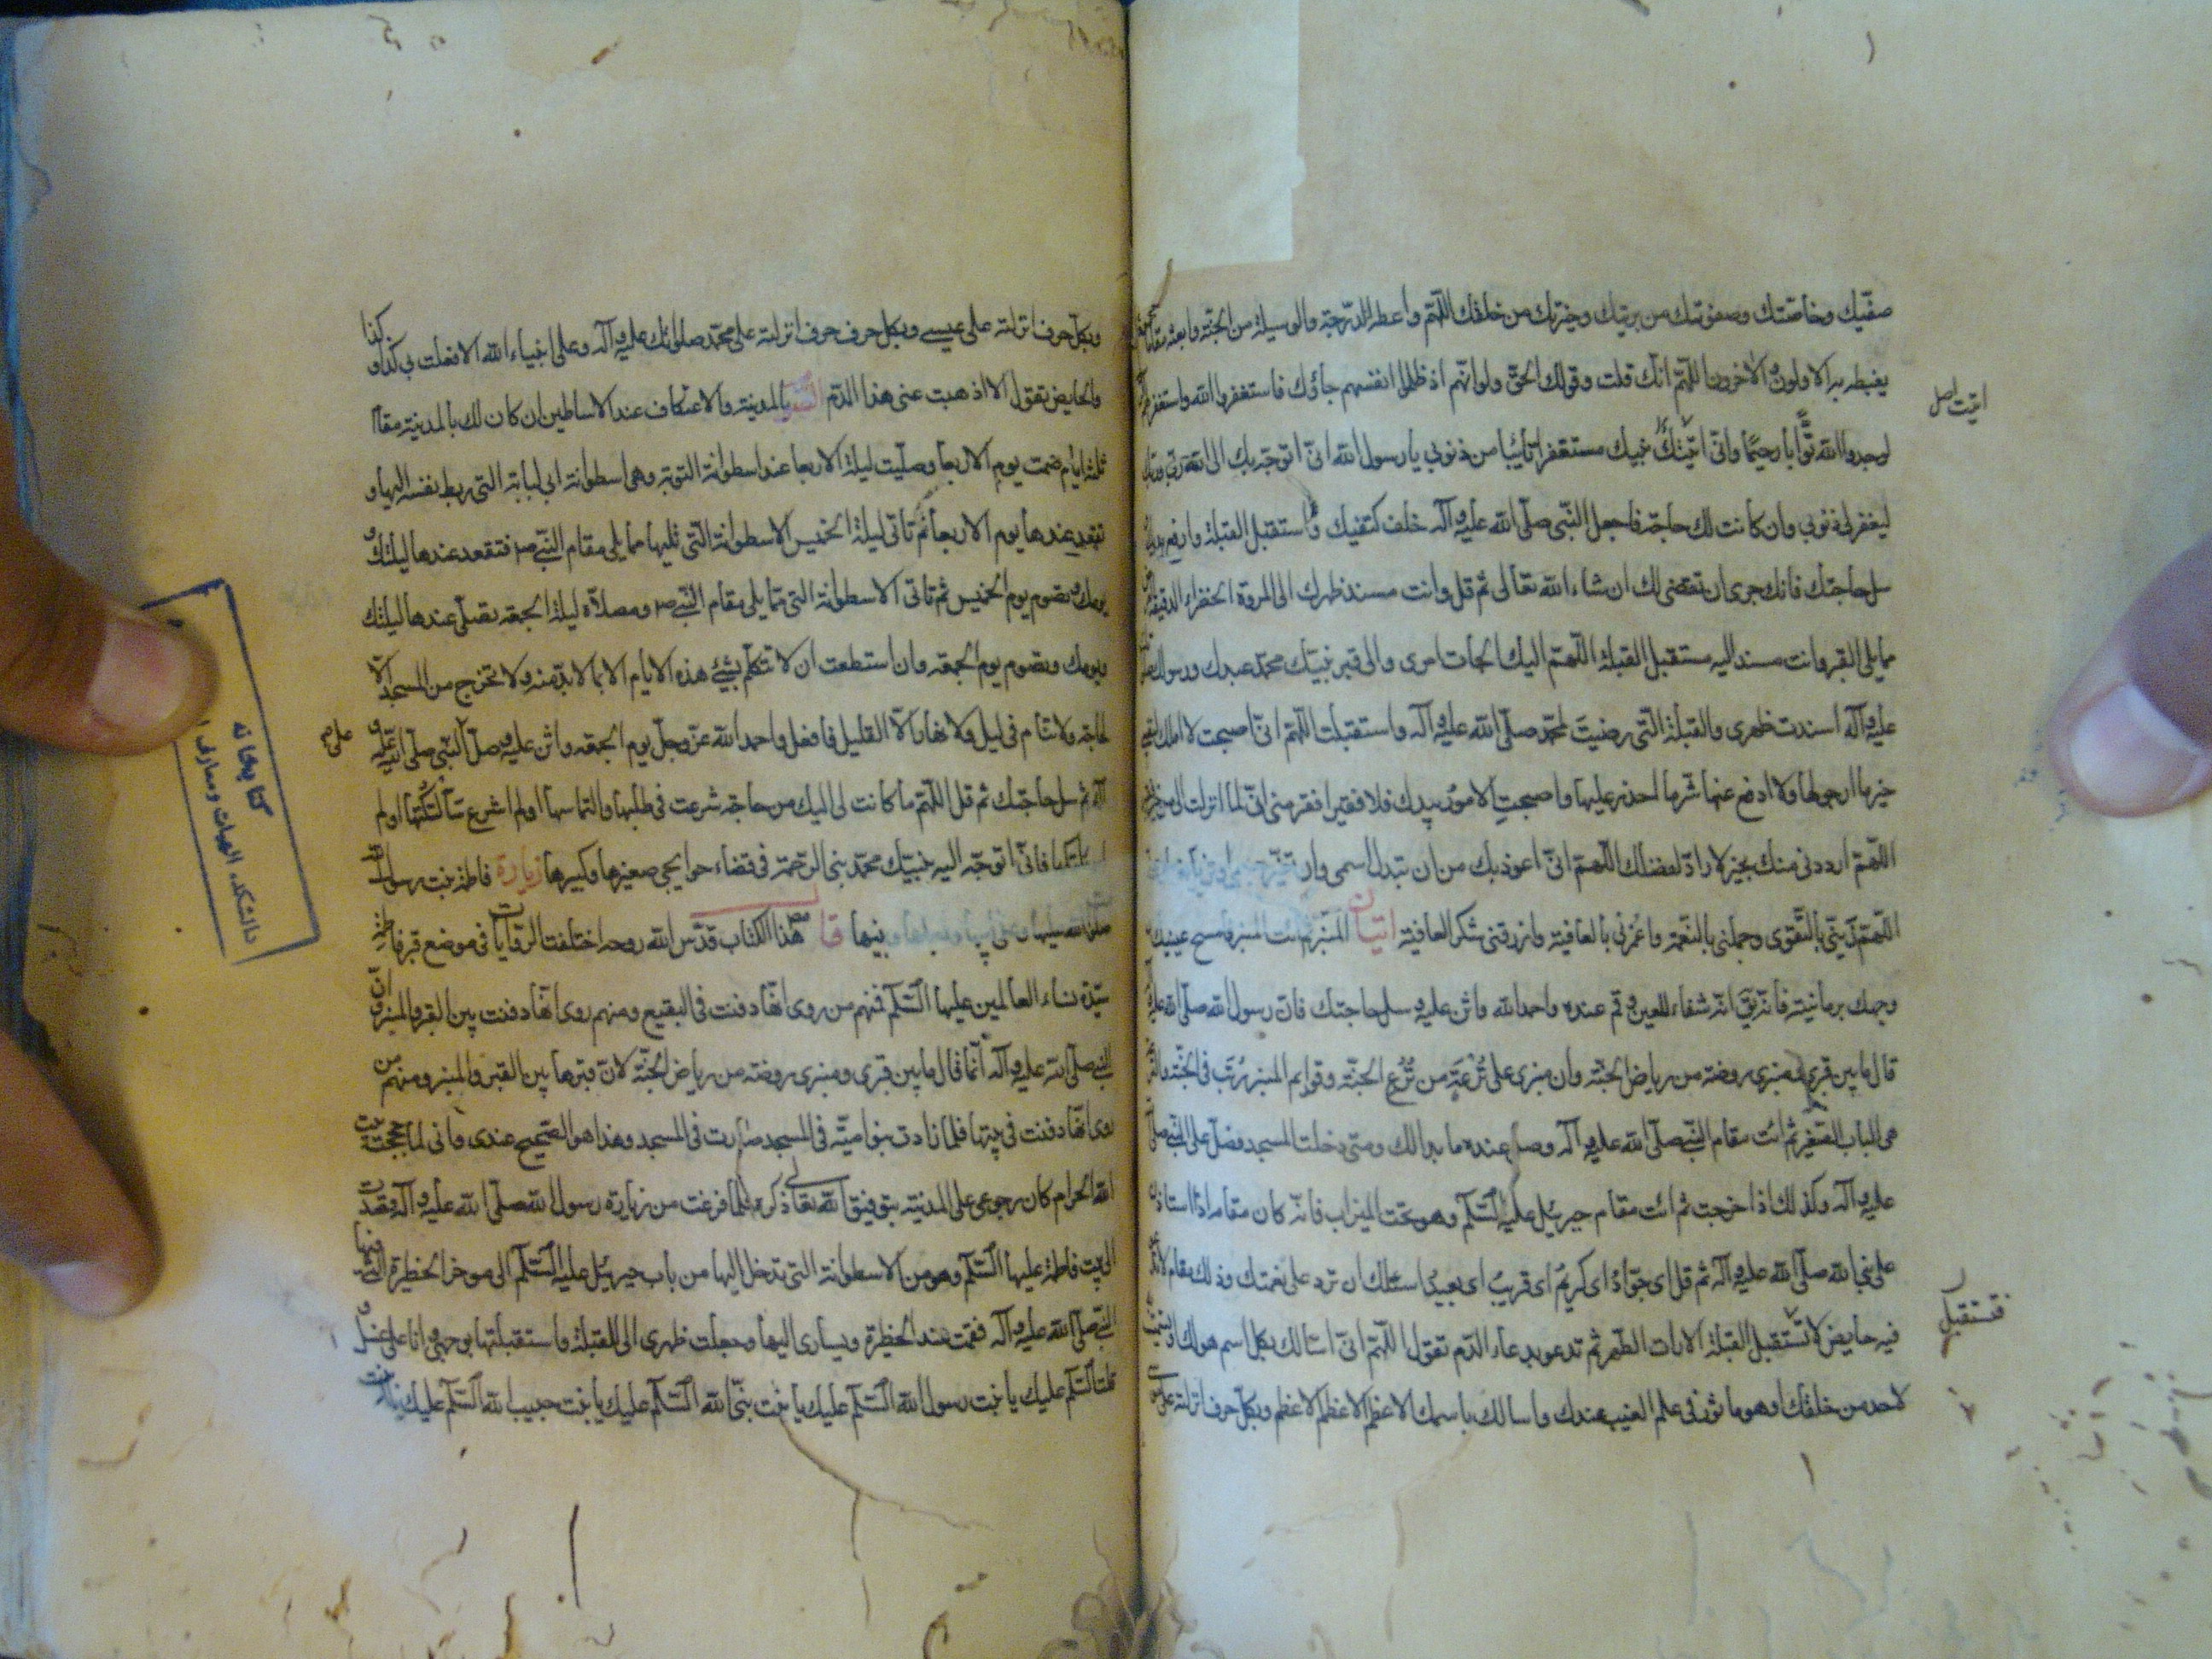 صفيّك وخاصّتك وصفوتك من بريتك وخيرتك من خلقك اللهمّ واعطه الدّرجة والوسيلة من الجنّة وابعثه مقاما
يغبطه به الاولون والآخرون اللهمّ انّك قلت وقولك الحقّ ولو انّهم اذ ظلموا انفسهم جاؤك فاستغفروا الله واستغفر لهم
لوجدوا الله توّابا رحيمًا وانّى اتيتك نبيك مستغفرا تائبا من ذنوبى يا رسول الله انّى اتوجّه بك الى الله ربّى وربّك
اتيت اصل
ليغفر لى ذنوبى وان كانت لك حاجة فاجعل النّبى صلّى الله عليه وآله خلف كتفيك واستقبل القبلة وارفع يديك
سل حاجتك فانك حرى ان تقضى لك ان شاء الله تعالى ثم قل وانت مسند ظهرك الى المروة الخضراء الدقيقة
مما يلى القبر وانت مسند اليه مستقبل القبلة اللّهمّ اليك الجات امرى والى قبر نبيّك محمّد عبدك ورسولك
عليه وآله اسندت ظهرى والقبلة الّتى رضيت لمحمّد صلّى الله عليه وآله واستقبلت اللّهمّ انّى اصبحت لا املك لنفسى
خير ما ارجو لها ولا ادفع عنها شرّ ما احذر عليها واصبحت الامور بيدك فلا فقير افقر منى انّى لما انزلت الى من خير فقير
اللّهمّ ارددنى منك بخير لا رادّ لفضلك اللّهمّ انّى اعوذ بك من ان تبدل اسمى وان تغيّر جسمى
اللّهمّ زيّنى بالتّقوى وجملنى بالنّعمة واغمرنى بالعافية وارزقنى شكر العافية اتيان المنبر ثم ائت المنبر فامسح عينيك
وجهك برمانيته فانّه يقى انّه شفاء للعين وقم عنده واحمد الله واثن عليه وسل حاجتك فانّ رسول الله صلّى الله عليه
قال ما بين قبرى ومنبرى روضة من رياض الجنّة وان منبرى على تُرْعَةٍ من تُرَع الجنّة وقوايم المنبر رُتَب فى الجنّة
هى الباب الصّغير ثم ائت مقام النّبى صلّى الله عليه وآله وصل عنده ما بدا لك ومتى دخلت المسجد فصلّ على النّبى صلّى
عليه وآله وكذلك اذا خرجت ثم ائت مقام جبرئيل عليه السّلام وهو تحت الميزاب فانّه كان مقامه اذا استاذن
على نبى الله صلّى الله عليه وآله ثم قل اى جوّادُ اى كريمُ اى قريبُ اى بعيدُ اسئلك ان تردّ على نعمتك وذلك مقام
فيه حايض لا تستقبل القبلة الا رات الطّهر ثم تدعو بدعاء الدّم تقول اللّهمّ انّى اسالك بكل اسم هو لك
فتستقبل
لاحد من خلقك او هو ماثور فى علم الغيب عندك واسالك باسمك الاعظم الاعظم الاعظم وبكلّ حرف انزلته على
وبكلّ حرف انزلته على عيسى وبكل حرف حرف انزلته على محمّد صلواتك عليه وآله وعلى انبياء الله الا فعلت بى كذا وكذا
والحايض تقول الا اذهبت عنى هذا الدّم بالمدينة والاعتكاف عند الاساطين ان كان لك بالمدينة مقام
ثلثة ايّام صمت يوم الاربعا وصلّيت ليلة الاربعا عند اسطوانة التوبة وهى اسطوانة ابى لبابة التى ربط نفسه اليها و
تقعد عندها يوم الاربعا ثم تاتى ليلة الخميس الاسطوانة الّتى تليها مما يلى مقام النّبى ص فتقعد عندها ليلتك و
يومك وتصوم يوم الخميس ثم تاتى الاسطوانة التى تلى مقام النّبى ص ومصلّاه ليلة الجمعة تصلّى عندها ليلتك
ويومك وتصوم يوم الجمعة وان استطعت ان لا تتكلّم بشيئ هذه الايام الا بما لا بدّ منه ولا تخرج من المسجد الّا
لحاجة ولا تنام فى ليل ولا نهار الّا القليل فافعل واحمد الله عزّ وجلّ يوم الجمعة واثن عليه وصلّ النّبى صلّى الله عليه و
على م
آله ثم سل حاجتك ثم قل اللّهمّ ما كانت لى اليك من حاجة شرعت فى طلبها والتماسها او لم اشرع سألتكها او لم
اسالكها فانّى اتوجّه اليه بنبيّك محمّد نبى الرّحمة فى قضاء حوايجى صغيرها وكبيرها زيارة فاطمة بنت رسول الله
صلى الله عليها وعلى ابيها وبعلها وبنيها قال مص هذا الكتاب قدّس الله روحه اختلفت الرّوايات فى موضع قبر فاطمة
سيّدة نساء العالمين عليها السّلام فمنهم من روى انّها دفنت فى البقيع ومنهم روى انّها دفنت بين القبر والمنبر وانّ
النّبى صلّى الله عليه وآله انّما قال ما بين قبرى ومنبرى روضة من رياض الجنّة لانّ قبرها بين القبر والمنبر ومنهم من
روى انّها دفنت فى بيتها فلما زادت بنو اميّة فى المسجد صارت فى المسجد وهذا هو الصّحيح عندى وانى لما حججت بيت
الله الحرام كان رجوعى على المدينة بتوفيق الله تعالى ذكره فلما فرغت من زيارة رسول الله صلّى الله عليه وآله قصدت
الى بيت فاطمة عليها السّلام وهو من الاسطوانة التى تدخل اليها من باب جبرئيل عليه السّلام الى موخر الحظيرة الّتى فيها
النّبى صلّى الله عليه وآله فقمت عند الحظيرة ويسارى اليها وجعلت ظهرى الى القبلة واستقبلتها بوجهى وانا على غسل و
قلت السّلام عليك يا بنت رسول الله السّلام عليك يا بنت نبّى الله السّلام عليك يا بنت حبيب الله السّلام عليك يا بنت
كتابخانه
دانشكده الهيات ومعارف ا